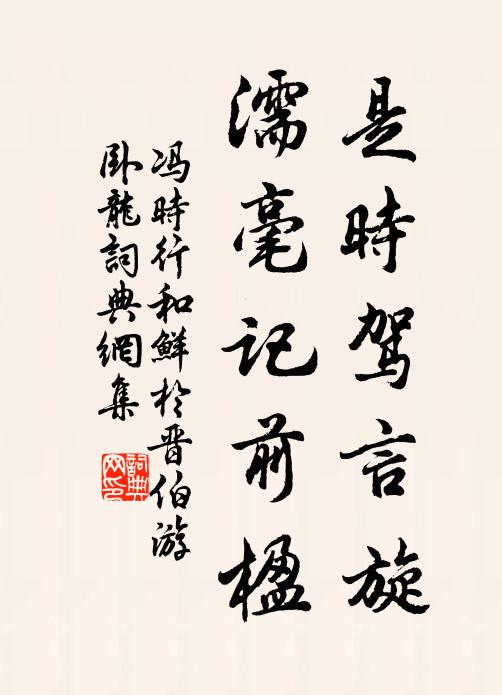 是時驾言旋
濡毫记前楹
冯時行和鮮於晋伯游
卧龍詞典網集
詞典
网印